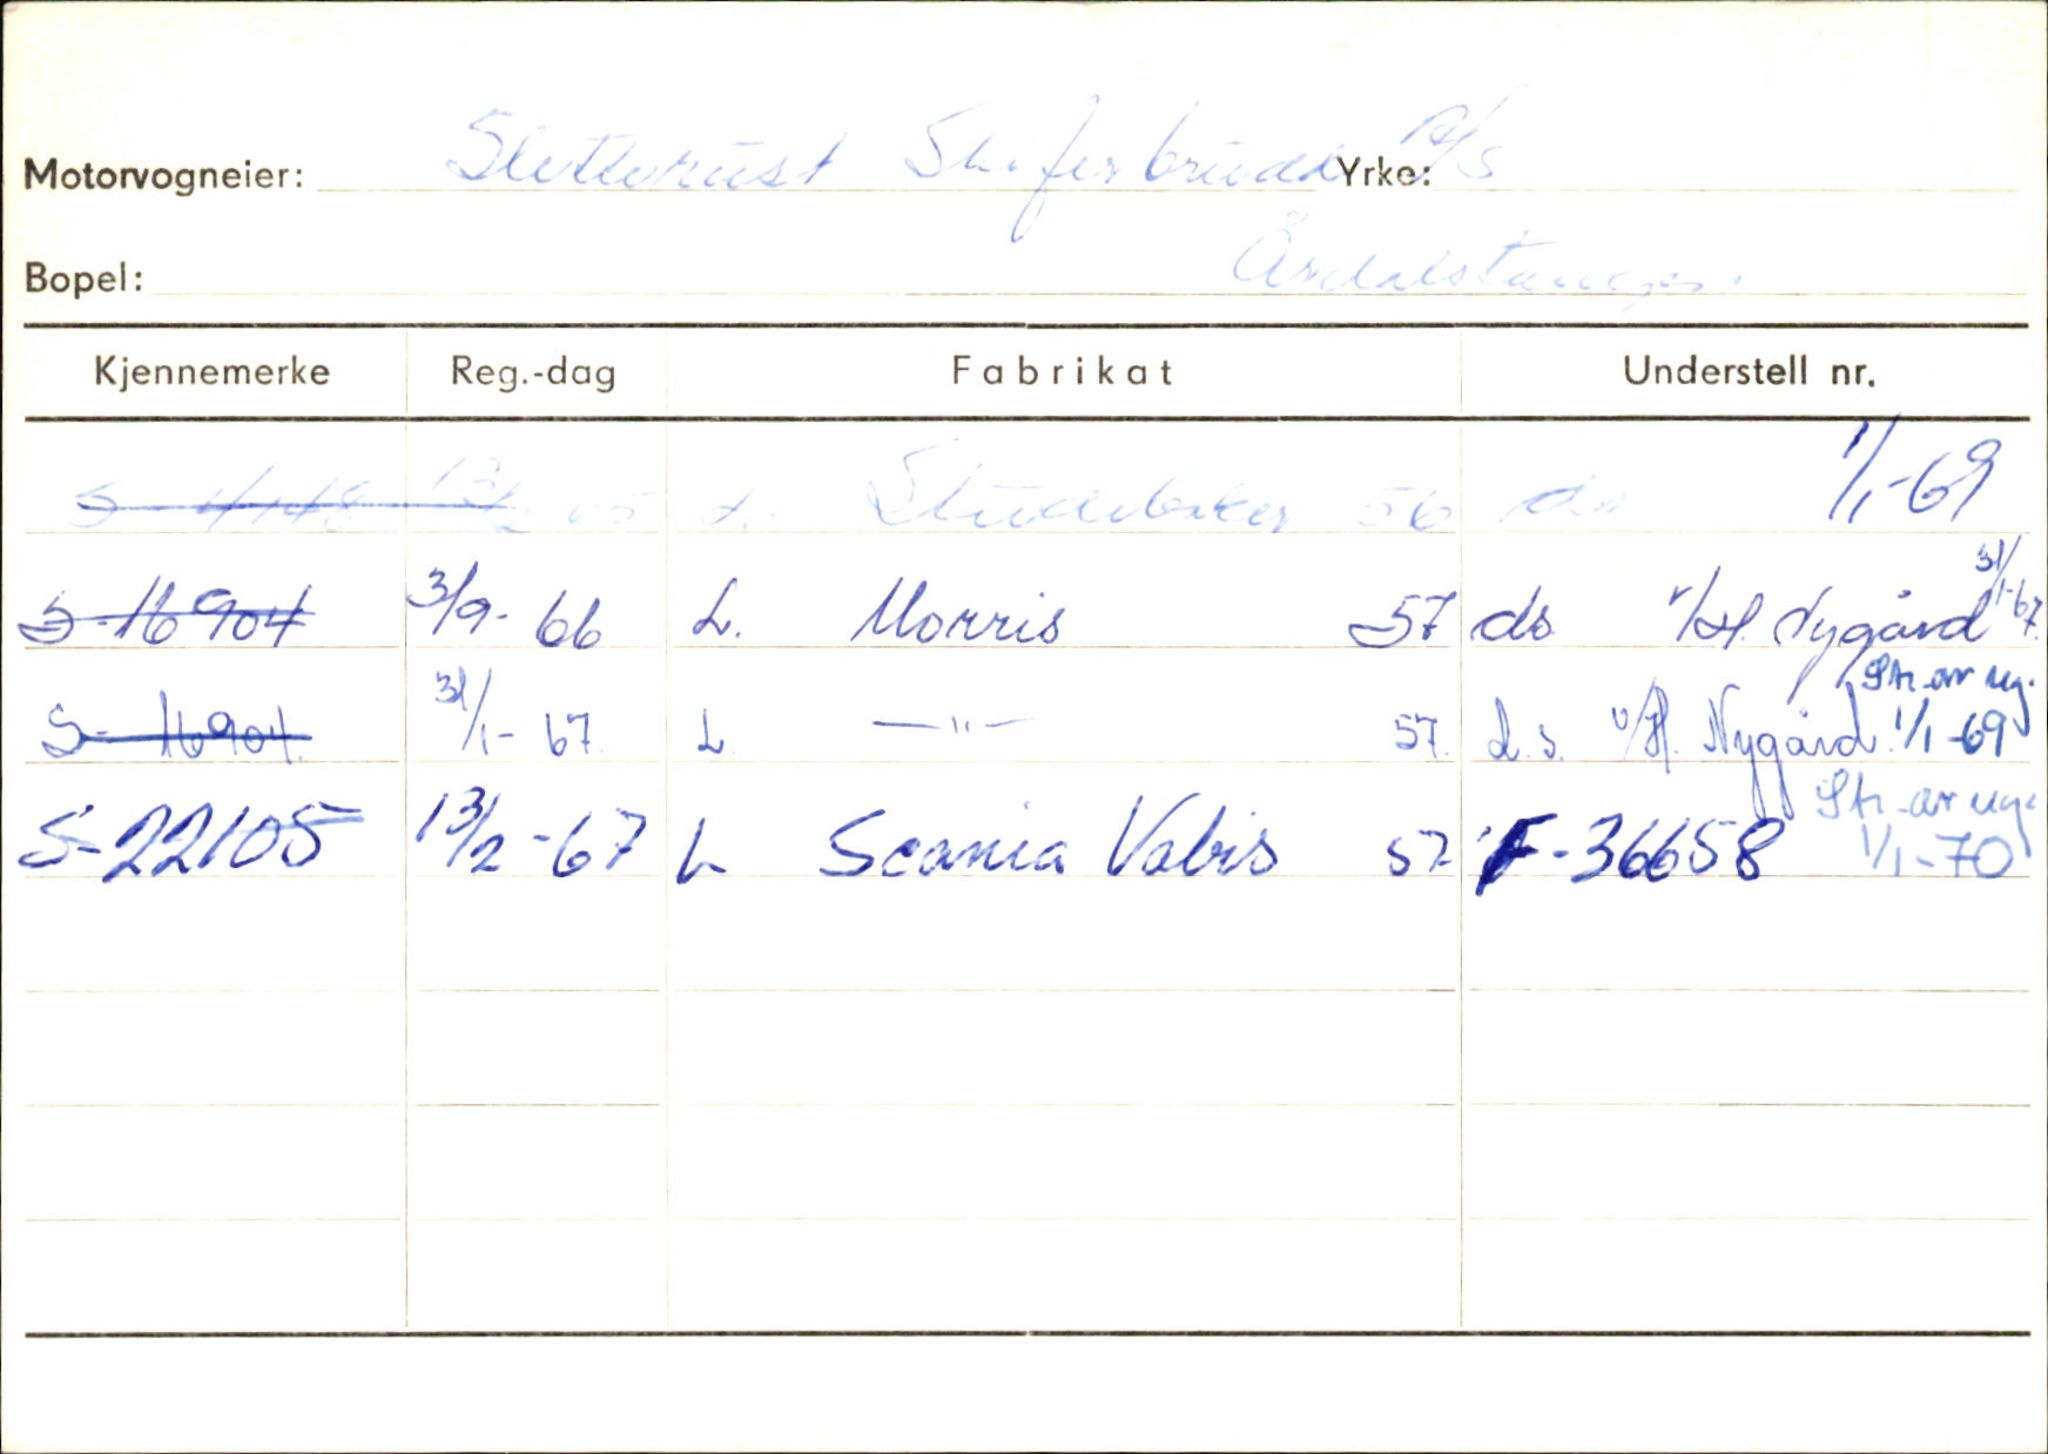 Motorvogneier: Sletterust Skiferbrudd A/S Yrke:
Bopel: Årdalstangen.
Kjennemerke Reg.-dag Fabrikat Understell nr.
S- 4148 65 L. Studebaker 56 ds 1/1-69
S-16904 3/9-66 L. Morris 57 ds v/H. Nygård 31/1-67.
S-16904. 31/1-67. L. —"— 57. d.s. v/H. Nygård. Str. av reg. 1/1-69
S-22105 13/2-67 L Scania Vabis 57 F-36658 Str. av reg. 1/1-70